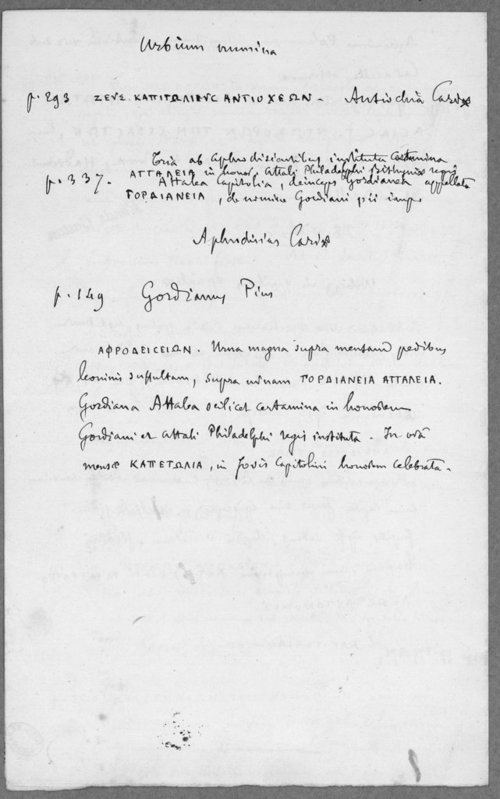 Urbium numina
p. 293 ΖΕΥΣ. ΚΑΠΙΤΩΛΙΕΥΣ ΑΝΤΙΟΧΕΩΝ. Antiochia Cariæ
Tria ab Aphrodisientibus instituta certamina
p. 337. ΑΤΤΑΛΕΙΑ in honor. Attali Philadelphi Bithyniæ regis
Attalea Capitolia, deinceps Gordianea appellata
ΓΟΡΔΙΑΝΕΙΑ, de nomine Gordiani pii imp.
Aphrodisias Cariæ
p. 149 Gordianus Pius
ΑΦΡΟΔΕΙΣΕΙΩΝ. Urna magna supra mensam pedibus
leoninis suffultam, supra urnam ΓΟΡΔΙΑΝΕΙΑ ΑΤΤΑΛΕΙΑ.
Gordiana Attalea scilicet certamina in honorem
Gordiani et Attali Philadelphi regis instituta. In orâ
mensæ ΚΑΠΕΤΩΛΙΑ, in Jovis Capitolini honorem celebrata.